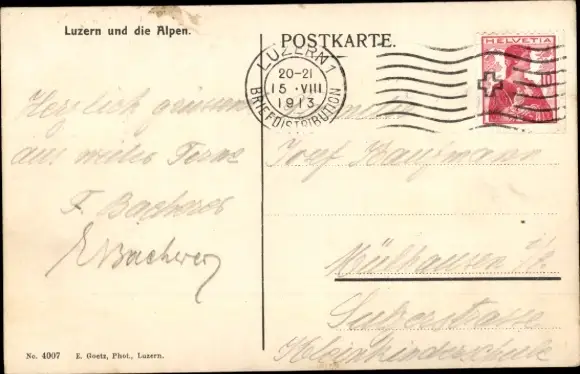 Luzern und die Alpen.
POSTKARTE.
HELVETIA
LUZERN 1
20-21
15·VIII
1913
BRIEFDISTRIBUTION
Herzlich grüssen
aus weiter Ferne
F. Bacherer
E Bacherer
Familie
Josef Kaufmann
Mülhausen i/E
Sulzerstrasse
Kleinkinderschule
No. 4007 E. Goetz, Phot., Luzern.